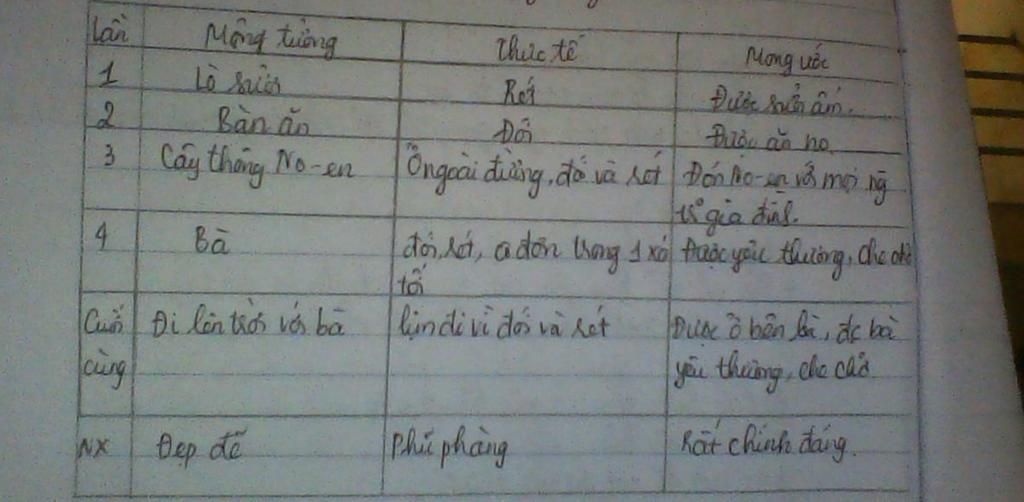 Lần Mộng tưởng Thực tế Mong ước
1 Lò sưởi Rét Được sưởi ấm.
2 Bàn ăn Đói Được ăn no.
3 Cây thông No-en Ở ngoài đường, đói và rét Đón No-en với mọi ng
gia đình.
4 Bà đói, rét, cô đơn trong 1 xó Được yêu thương, che chở
tối
Cuối Đi lên trời với bà lịm đi vì đói và rét Được ở bên bà, đc bà
cùng yêu thương, che chở
NX Đẹp đẽ Phũ phàng Rất chính đáng.